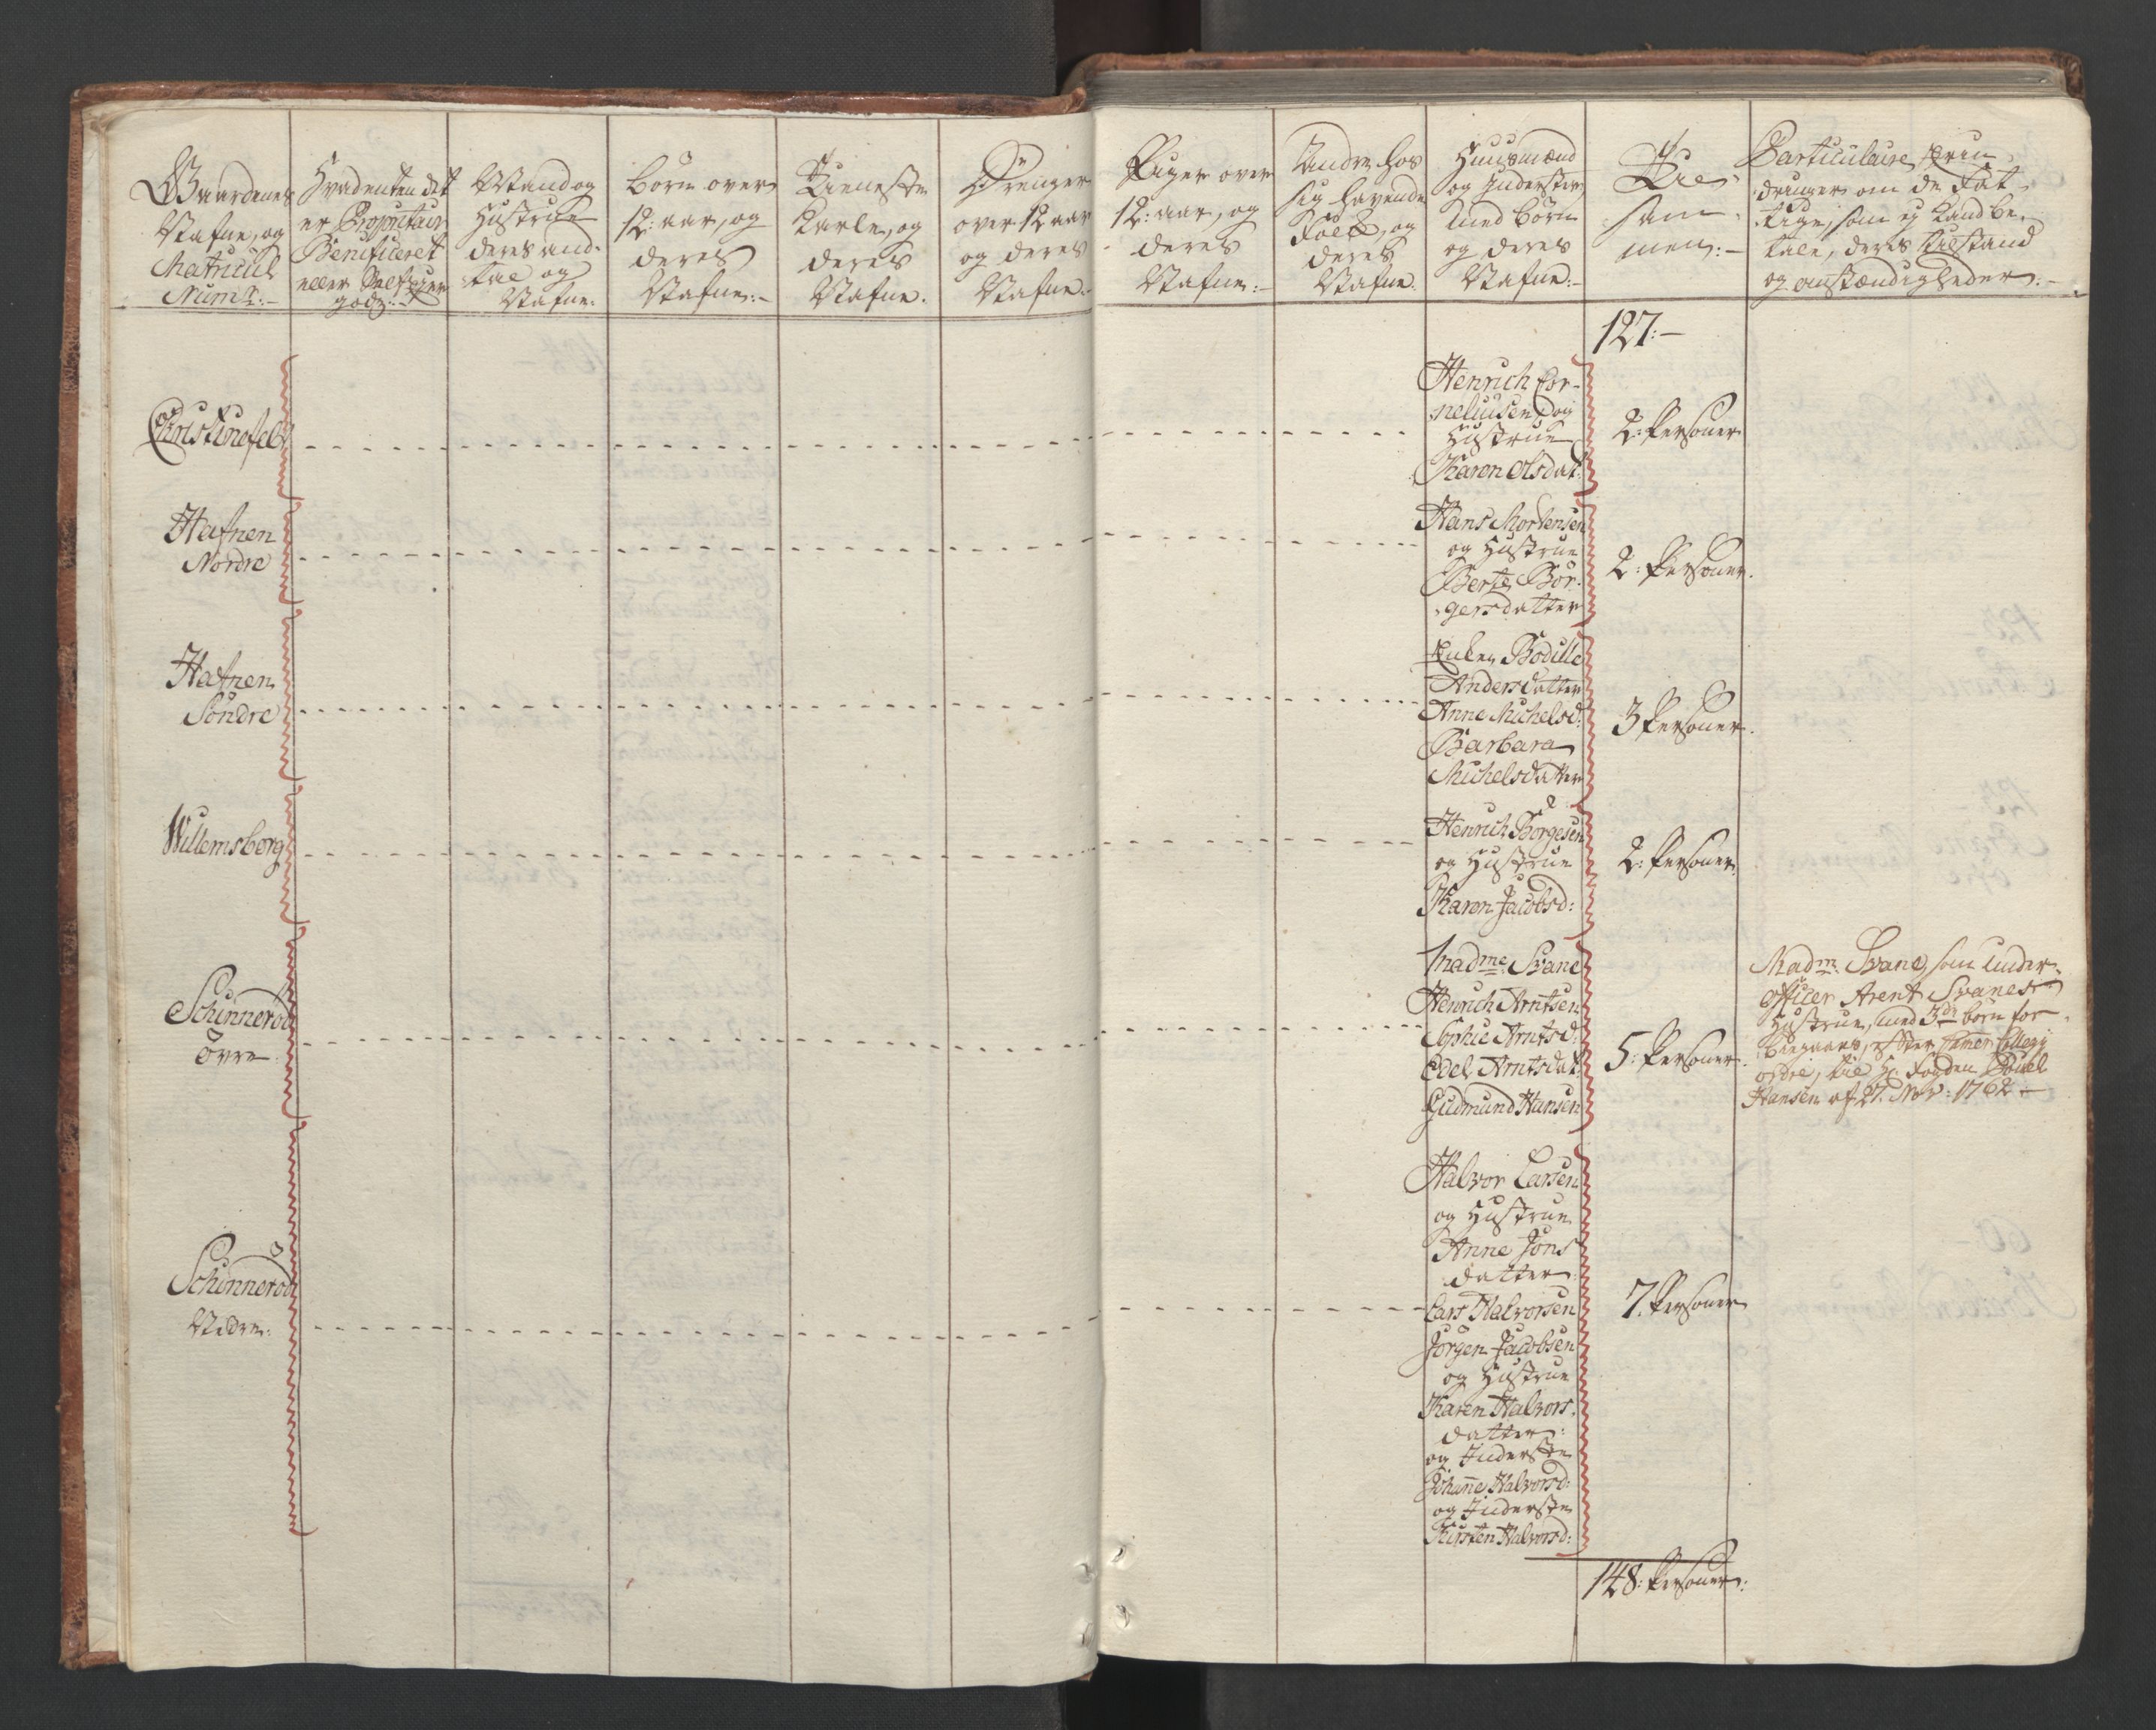 Gaardenes
Nafne, og
Matricul
Numr:
Hvadenten det
er Proprietair
Beneficeret
eller Selfejer
gods:
Mand og
Hustrue
deres and-
tal og
Nafne:
Börn over
12: aar, og
deres
Nafne:
Tieneste
Karle, og
deres
Nafne.
Drenger
over 12 aar
og deres
Nafne:
Piger over
12: aar, og
deres
Nafne:
Andre hos
sig havende
Folk, og
deres
Nafne.
Huusmænd
og Inderster
med Börn
og deres
Nafne:
Til-
sam-
men:
Particulaire Erin-
dringer om de Fat-
tige, som ej kand be-
tale, deres tilstand
og omstændigheder:
127:
Christinefeld
Henrich Cor-
neliusen og
Hustrue
Karen Olsdat:
2: Personer
Hafnen
Nordre
Hans Mortensen
og Hustrue
Berte Bör-
gersdatter
2: Personer.
Hafnen
Söndre
Enken Bodille
Andersdatter
Anne Michelsd:
Barbara
Michelsdatter
3 Personer.
Willemsborg
Henrich Borgesen
og Hustrue
Karen Jacobsd:
2: Personer
Schinneröd
Övre
Madme Svane
Henrich Arntsen
Sophie Arntsd:
Edel Arntsdat:
Gudmund Hansen
5: Personer
Madm: Svane, som under-
officer Arent Svanes
Hustrue, med 3de börn for-
biegaaes, efter Camer Collegij
ordre, til Hr. Fogden Pouel
Hansen af 27. Nov: 1762
Schinneröd
Nedre.
Halvor Larsen
og Hustrue
Anne Jons
datter
Lars Halvorsen
Jörgen Jacobsen
og Hustrue
Karen Halvors-
datter:
og Inderste
Johanne Halvorsd:
og Inderste
Kirsten Halvorsd:
7. Personer
148: Personer: